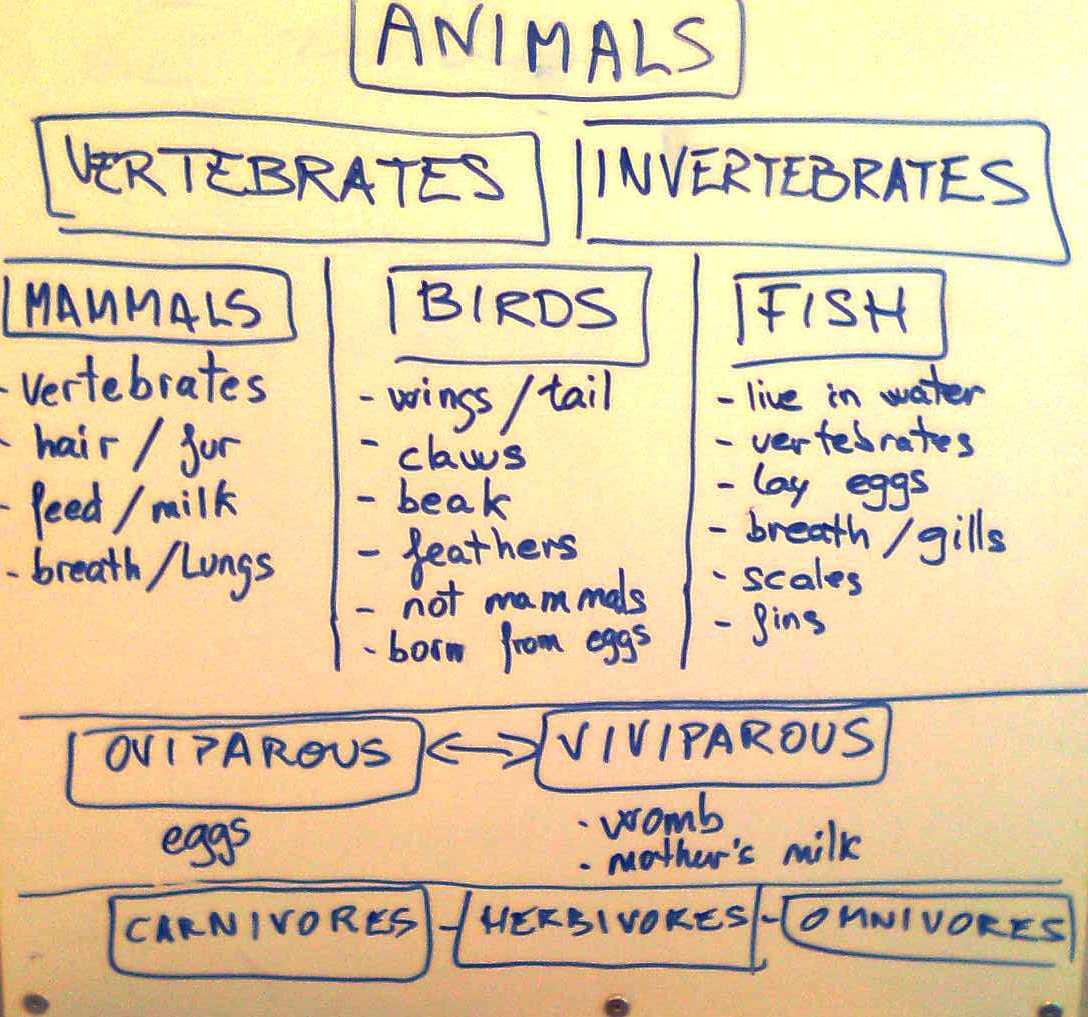 ANIMALS
VERTEBRATES
INVERTEBRATES
MAMMALS
- vertebrates
- hair / fur
- feed / milk
- breath / Lungs
BIRDS
- wings / tail
- claws
- beak
- feathers
- not mammals
- born from eggs
FISH
- live in water
- vertebrates
- lay eggs
- breath / gills
- scales
- fins
OVIPAROUS <-> VIVIPAROUS
eggs
· womb
· mother's milk
CARNIVORES - HERBIVORES - OMNIVORES